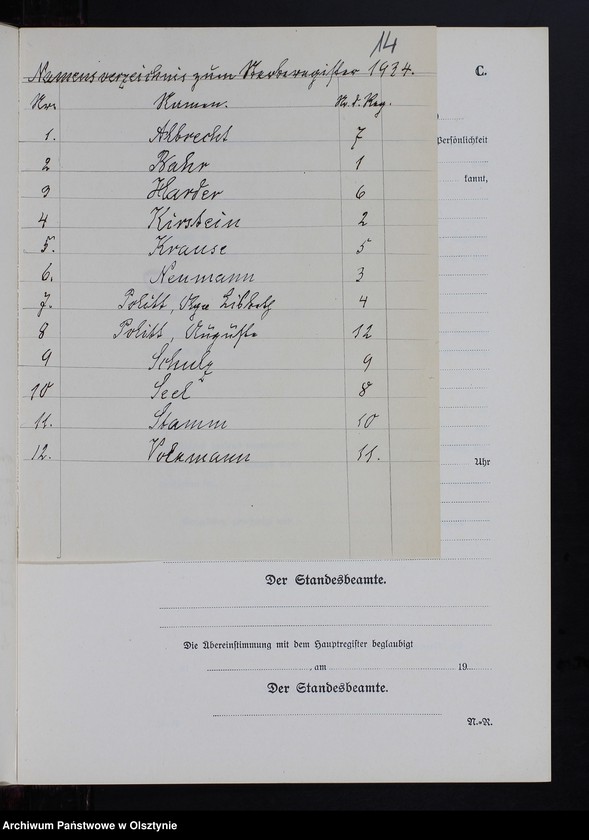 14
Namensverzeichnis zum Sterberegister 1934.
Nr. Namen. Nr. d. Reg.
1. Ahbrecht 7
2 Bahr 1
3 Harder 6
4 Kirstein 2
5. Krause 5
6. Neumann 3
7. Politt, Lisbeth 4
8 Politt, Auguste 12
9 Schulz 9
10 Seel 8
11. Stamm 10
12. Volkmann 11.
C.
Persönlichkeit
kannt,
Uhr
Der Standesbeamte.
Die Übereinstimmung mit dem Hauptregister beglaubigt
, am 19
Der Standesbeamte.
N.-R.
Archiwum Państwowe w Olsztynie